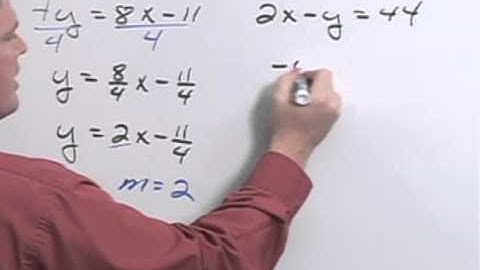 4y = 8x - 11
4 4
y = 8/4 x - 11/4
y = 2x - 11/4
m = 2
2x - y = 44
-